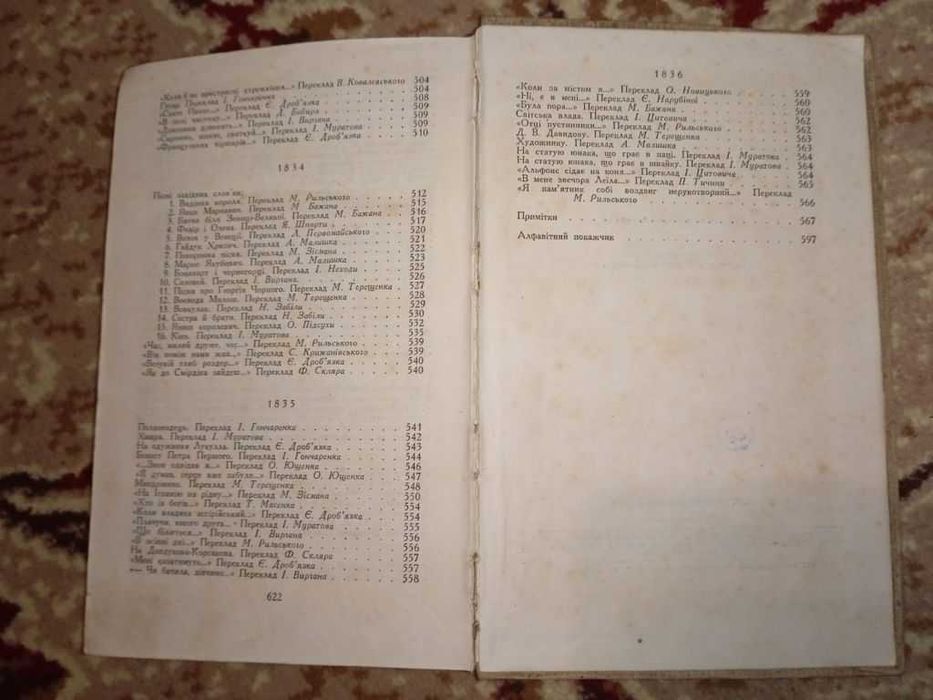 «Коли б не пристрасні стремління...» Переклад В. Ковалевського 504
Гусар. Переклад І. Гончаренка . . . 504
«Сват Іване...» Переклад Є. Дроб'язка . . . 508
Переклад Л. Бобиря . . . 509
Переклад І. Виргана . . . 509
Переклад І. Муратова . . . 509
Переклад Є. Дроб'язка . . . 510
1834
Пісні західних слов'ян:
1. Видіння короля. Переклад М. Рильського . . . 512
2. Янко Марнавич. Переклад М. Бажана . . . 515
3. Битва біля Зениці-Великої. Переклад М. Бажана . 516
4. Федір і Олена. Переклад Я. Шпорти . . . 517
5. Влах у Венеції. Переклад Л. Первомайського . . . 520
6. Гайдук Хризич. Переклад А. Малишка . . . 521
7. Похоронна пісня. Переклад М. Зісмана . . . 522
8. Марко Якубович. Переклад А. Малишка . . . 523
9. Бонапарт і чорногорці. Переклад І. Неходи . . . 525
10. Соловей. Переклад І. Виргана. . . . 526
11. Пісня про Георгія Чорного. Переклад М. Терещенка . 527
12. Воєвода Милош. Переклад М. Терещенка . . . 528
13. Вовкулак. Переклад Н. Забіли . . . 529
14. Сестра й брати. Переклад Н. Забіли . . . 530
15. Яниш королевич. Переклад О. Підсухи . . . 532
16. Кінь. Переклад І. Муратова . . . 535
«Час, милий друже, час...» Переклад М. Рильського . . . 539
«Він поміж нами жив...» Переклад С. Крижанівського . . . 539
Переклад Є. Дроб'язка . . . 540
Переклад Ф. Скляра . . . 540
1835
Полководець. Переклад І. Гончаренка . . . 541
Хмара. Переклад І. Муратова . . . 542
На одужання Лукулла. Переклад Є. Дроб'язка . . . 543
Бенкет Петра Першого. Переклад І. Гончаренка . . . 544
«...Знов одвідав я...» Переклад О. Ющенка . . . 546
«Я думав, серце вже забуло...» Переклад О. Ющенка . . . 547
Мандрівник. Переклад М. Терещенка . . . 548
«На Іспанію на рідну...» Переклад М. Зісмана . . . 550
«Хто із богів...» Переклад Т. Масенка . . . 554
«Коли владика ассірійський...» Переклад Є. Дроб'язка . . . 554
Переклад І. Муратова . . . 555
«Що біліється...» Переклад І. Виргана . . . 556
Переклад М. Рильського . . . 556
На Дондукова-Корсакова. Переклад Ф. Скляра . . . 557
Переклад Є. Дроб'язка . . . 557
Переклад І. Виргана . . . 558
622
1836
«Коли за містом я...» Переклад О. Новицького . . . 559
«Ні, є в мені...» Переклад Є. Нарубіної . . . 560
«Була пора...» Переклад М. Бажана . . . 560
Світська влада. Переклад І. Цитовича . . . 562
«Отці пустинники...» Переклад М. Рильського . . . 562
Д. В. Давидову. Переклад М. Терещенка . . . 563
Художнику. Переклад А. Малишка . . . 563
На статую юнака, що грає в паці. Переклад І. Муратова . 564
На статую юнака, що грає в швайку. Переклад І. Муратова . 564
«Альфонс сідає на коня...» Переклад І. Цитовича . . . 564
«В мене звечора Леїла...» Переклад П. Тичини . . . 565
«Я пам'ятник собі воздвиг нерукотворний...» Переклад
М. Рильського . . . 566
Примітки . . . 567
Алфавітний покажчик . . . 597